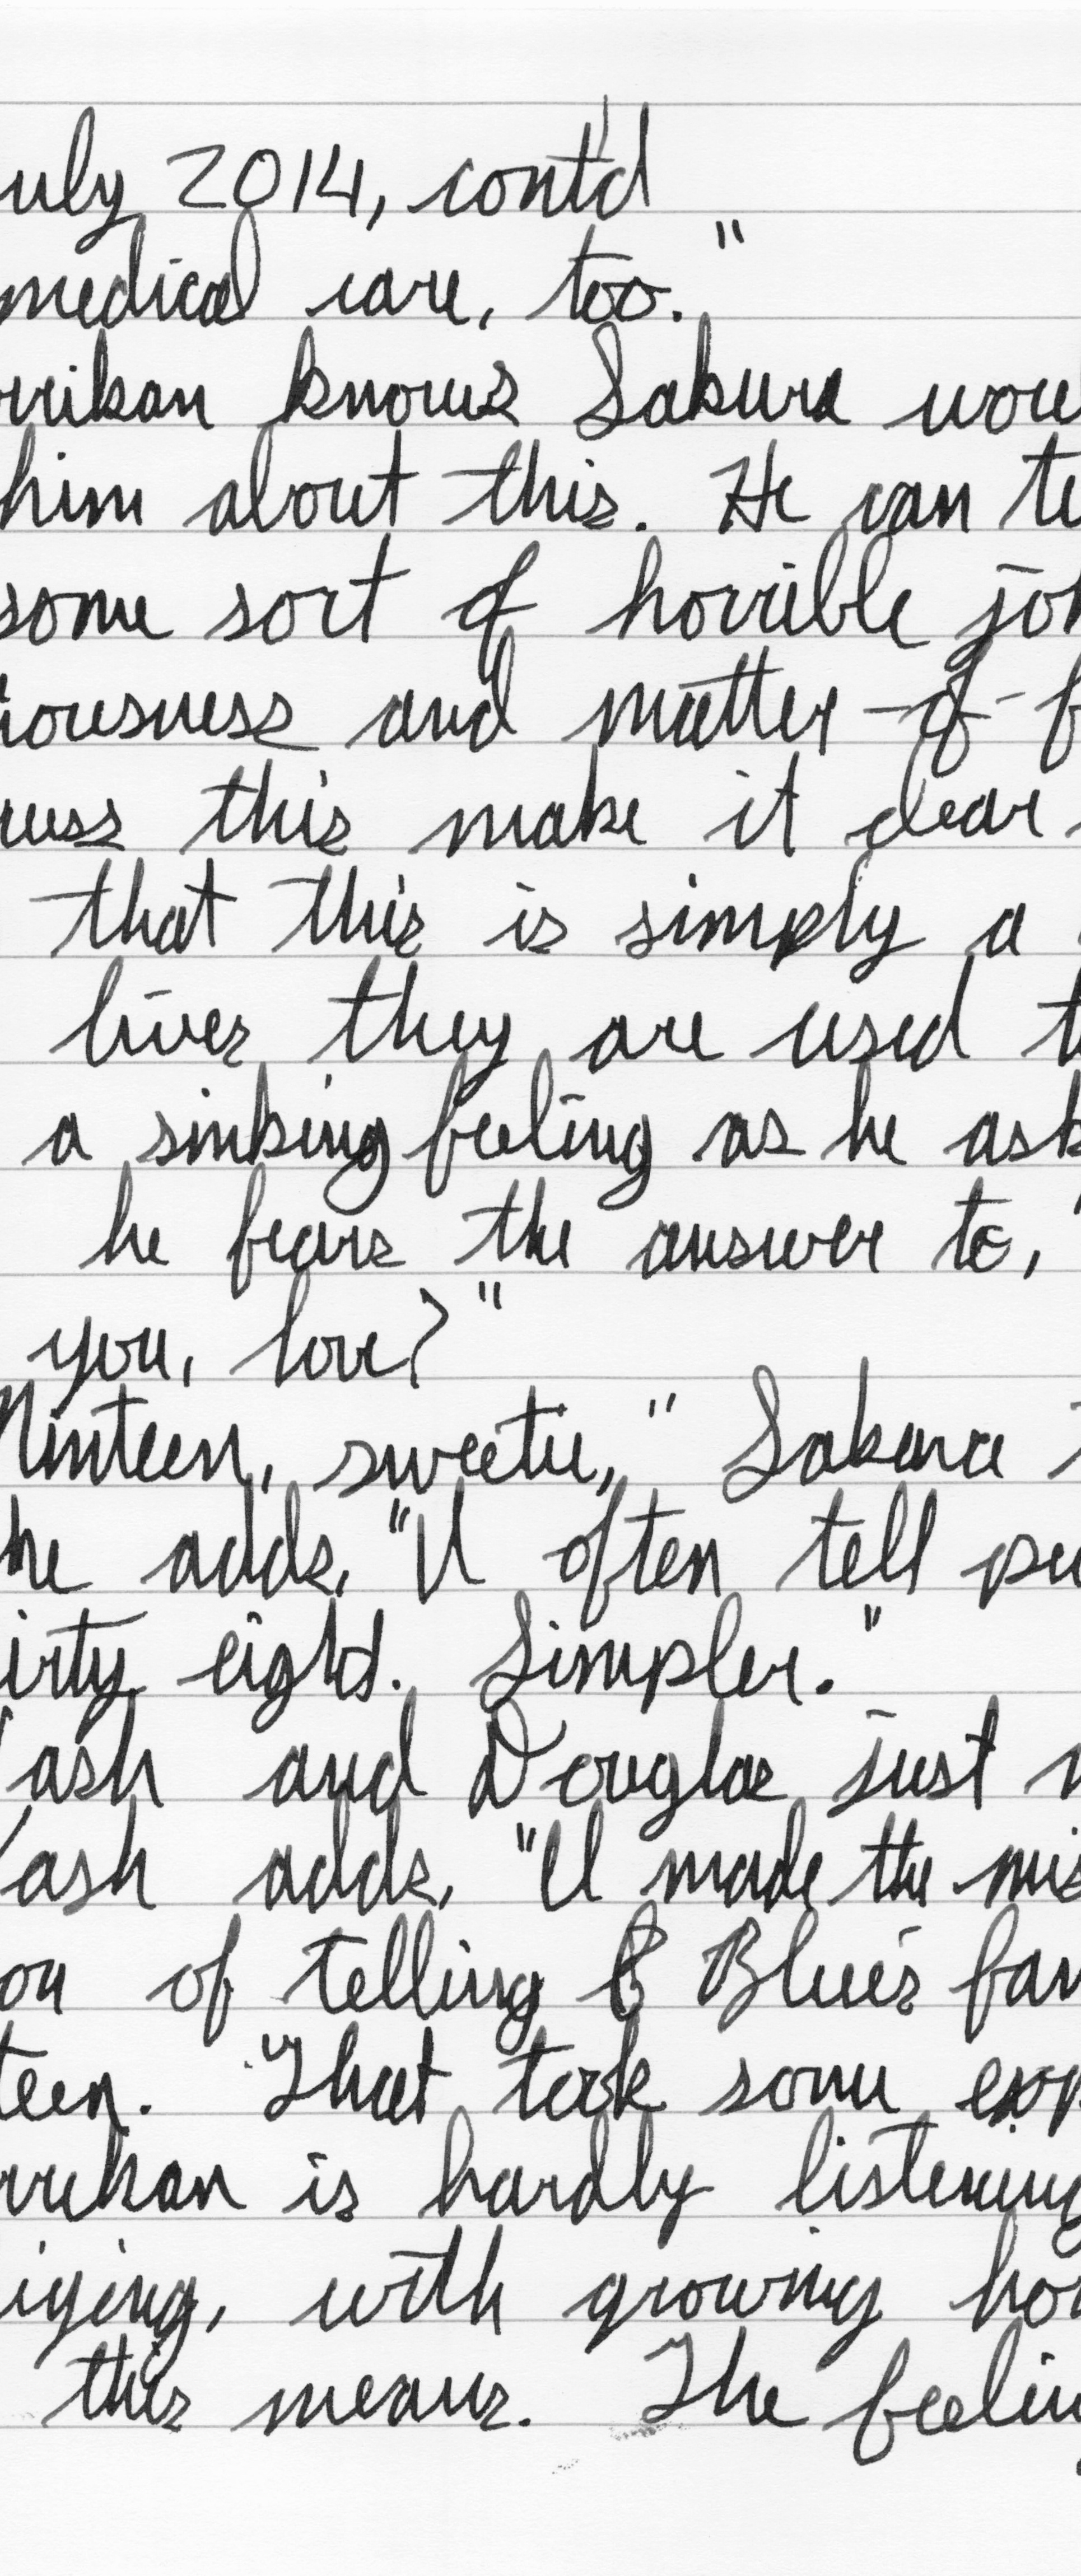 uly 2014, cont'd
medical care, too."
rrikan knows Sakura wou
him about this. He can te
some sort of horrible jok
iousness and matter-of-f
cuss this make it clear
that this is simply a
lives they are used t
a sinking feeling as he ask
he fears the answer to,
you, love?"
Ninteen, sweetie," Sakura
he adds, "I often tell pe
irty eight. Simpler."
ash and Douglas just n
ash adds, "I made the mis
on of telling Blue's fam
teen. That took some exp
rrikan is hardly listening
izing, with growing hor
this means. The feelin